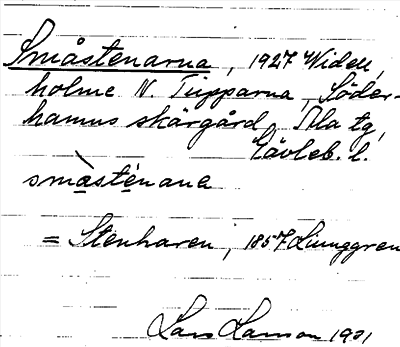 Småstenarna, 1927 Widell,
holme N. Tupparna, Söder-
hamns skärgård, Ala tg,
Gävleb. l.
smàsténana
= Stenharen, 1857 Ljunggren
Lars Larson 1931